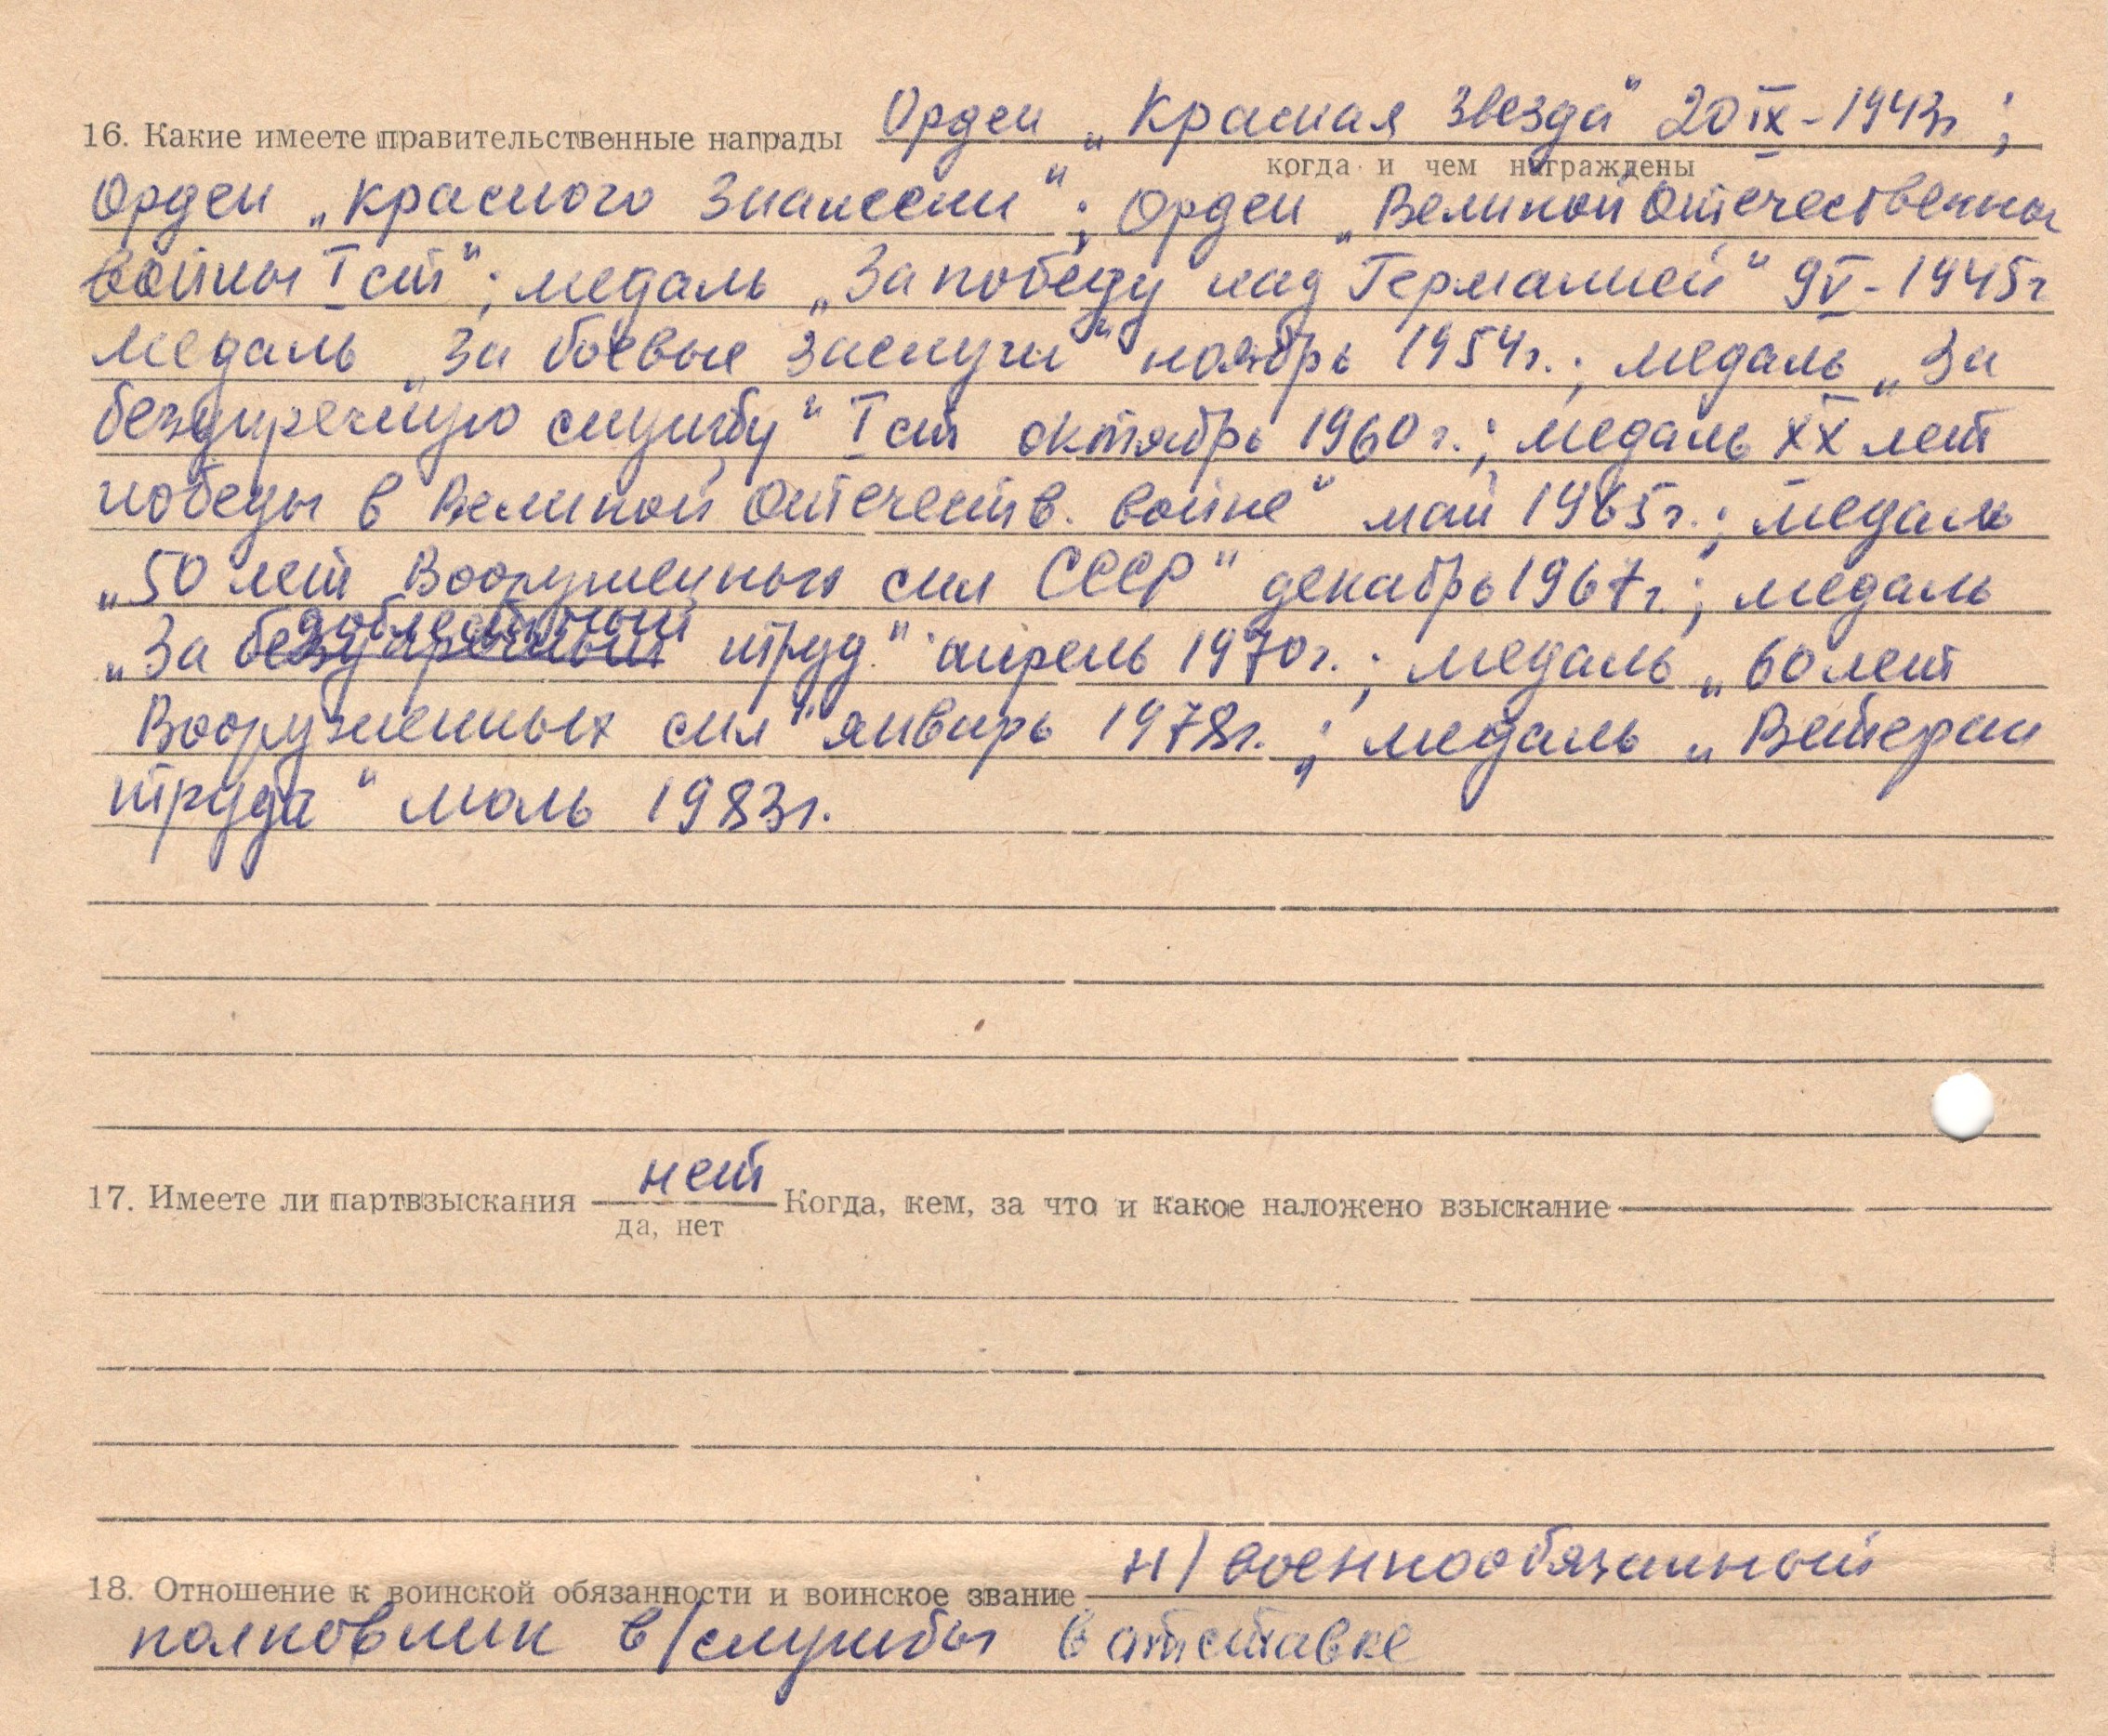 16. Какие имеете правительственные награды Орден „Красная Звезда" 20 IX - 1943г ;
когда и чем награждены
Орден „Красного Знамени" ; Орден „Великой Отечественной
войны I ст" ; медаль „За победу над Германией" 9 V - 1945г
медаль „За боевые заслуги" ноябрь 1954г. ; медаль „За
безупречную службу" I ст октябрь 1960г. ; медаль XX лет
победы в Великой Отечеств. войне" май 1965г. ; медаль
„50 лет Вооруженных сил СССР" декабрь 1967г. ; медаль
доблестный
„За безупречный труд." апрель 1970г. ; медаль „60 лет
Вооруженных сил" январь 1978г. ; медаль „Ветеран
труда" июль 1983г.
17. Имеете ли партвзыскания нет Когда, кем, за что и какое наложено взыскание
да, нет
18. Отношение к воинской обязанности и воинское звание н/военнообязанный
полковник в/службы в отставке